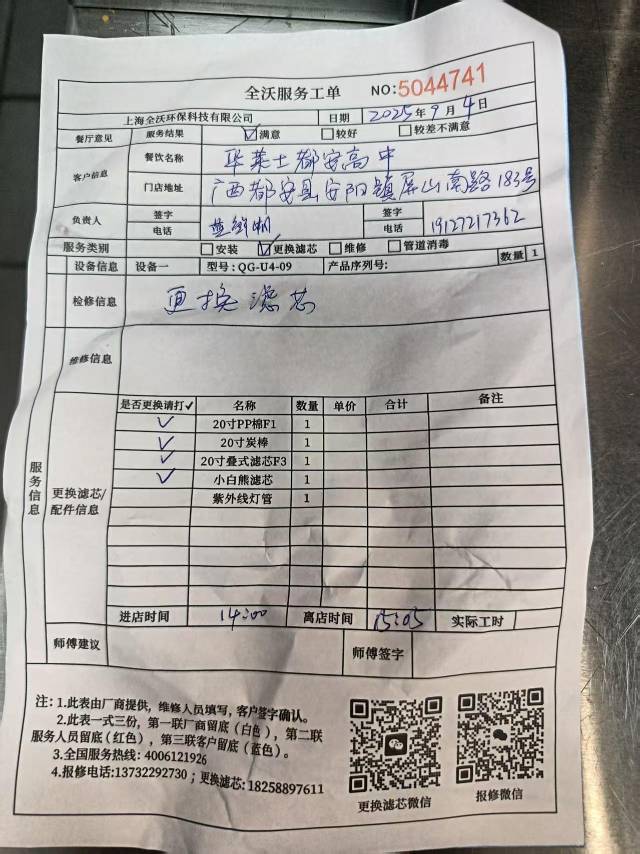 全沃服务工单 NO:5044741
上海全沃环保科技有限公司 日期 2025年9月4日
餐厅意见 服务结果 ☑满意 ☐较好 ☐较差不满意
客户信息 餐饮名称 华莱士都安高中
门店地址 广西都安县安阳镇屏山南路183号
负责人 签字 签字
电话 电话 19127217362
服务类别 ☐安装 ☑更换滤芯 ☐维修 ☐管道消毒
设备信息 设备一 型号:QG-U4-09 产品序列号: 数量 1
检修信息 更换滤芯
维修信息
服务信息
更换滤芯/配件信息
是否更换请打✓ 名称 数量 单价 合计 备注
✓ 20寸PP棉F1 1
✓ 20寸炭棒 1
✓ 20寸叠式滤芯F3 1
✓ 小白熊滤芯 1
紫外线灯管 1
进店时间 14:00 离店时间 15:05 实际工时
师傅建议 师傅签字
注:1.此表由厂商提供,维修人员填写,客户签字确认。
2.此表一式三份,第一联厂商留底(白色),第二联
服务人员留底(红色),第三联客户留底(蓝色)。
3.全国服务热线:4006121926
4.报修电话:13732292730;更换滤芯:18258897611
更换滤芯微信 报修微信